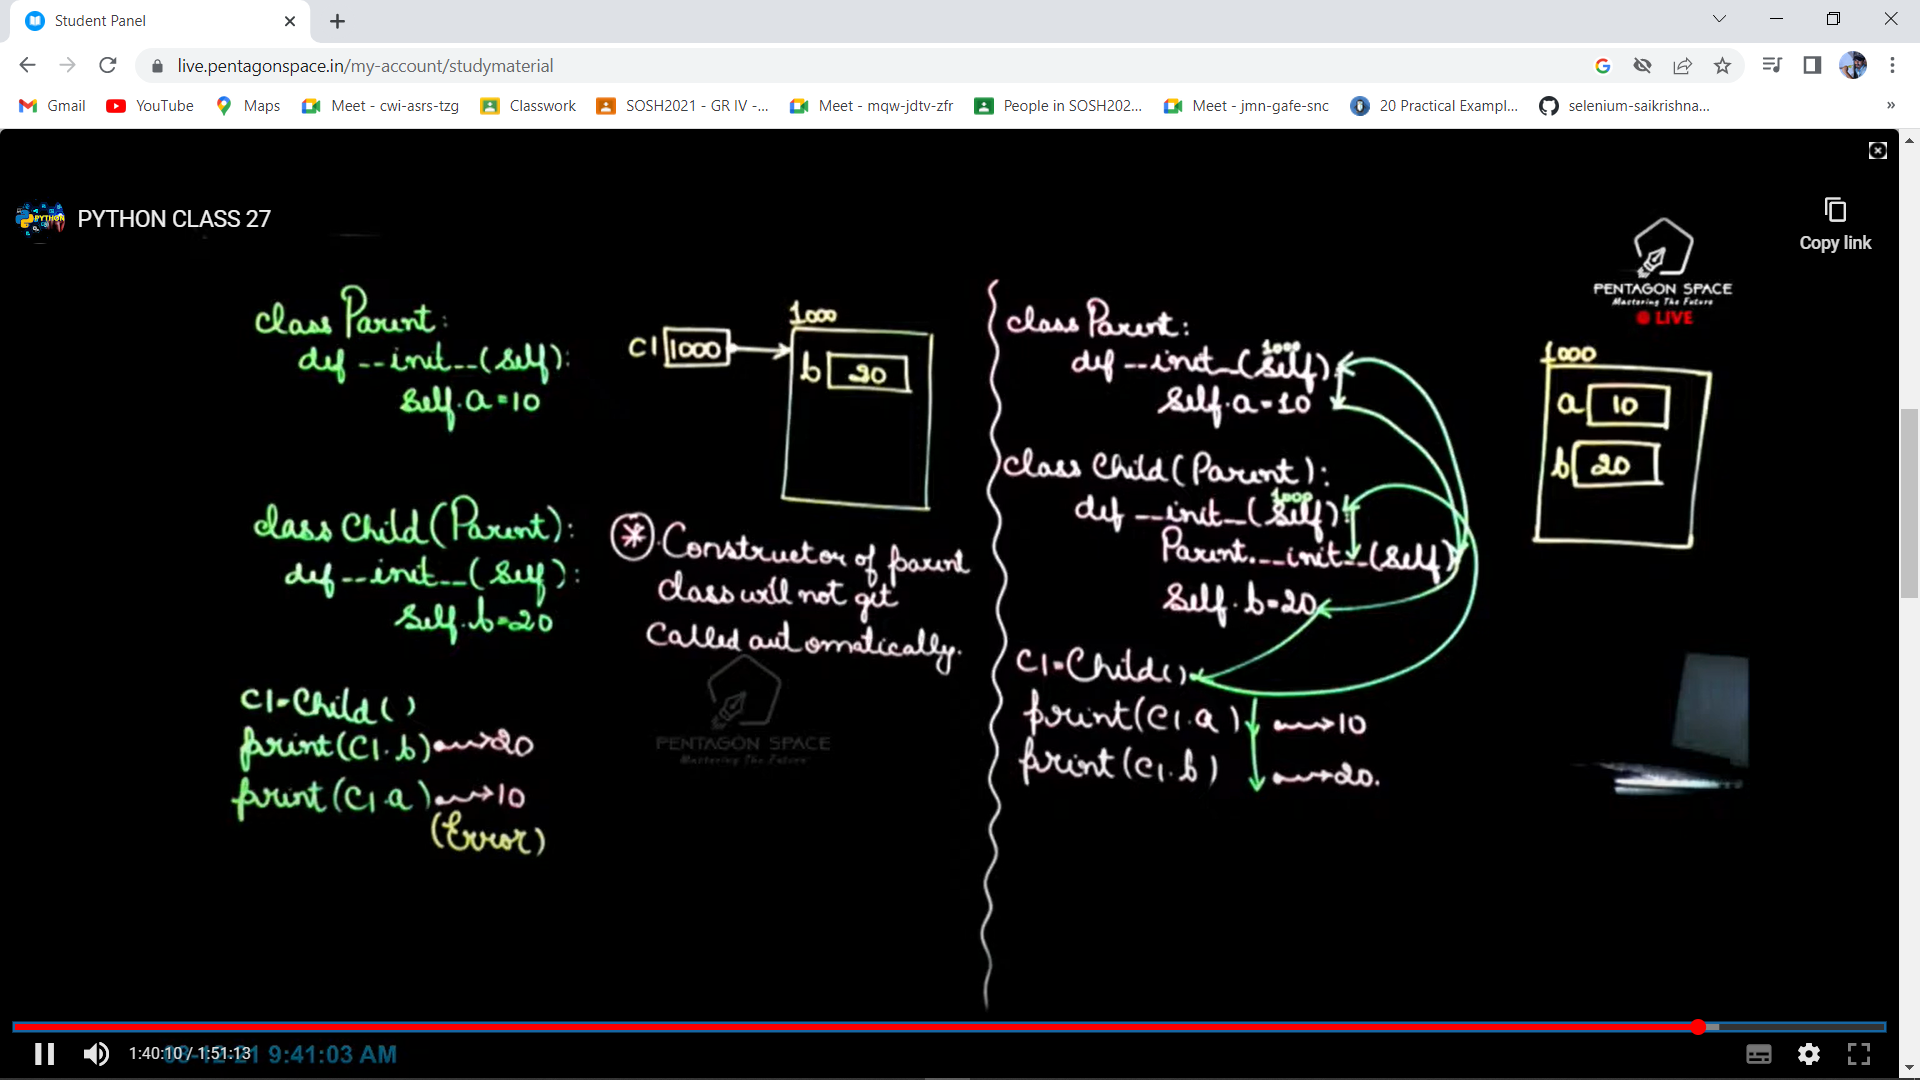 Student Panel
live.pentagonspace.in/my-account/studymaterial
Gmail
YouTube
Maps
Meet - cwi-asrs-tzg
Classwork
SOSH2021 - GR IV -...
Meet - mqw-jdtv-zfr
People in SOSH202...
Meet - jmn-gafe-snc
20 Practical Exampl...
selenium-saikrishna...
»
PYTHON CLASS 27
Copy link
PENTAGON SPACE
Mastering The Future
LIVE
class Parent:
def __init__(self):
self.a=10
class Child(Parent):
def __init__(self):
self.b=20
c1=Child()
print(c1.b) 20
print(c1.a) 10
(Error)
c1 1000
1000
b 20
* Constructor of parent
class will not get
called automatically.
PENTAGON SPACE
Mastering The Future
class Parent:
1000
def __init__(self):
self.a=10
class Child(Parent):
1000
def __init__(self):
Parent.__init__(self)
self.b=20
c1=Child()
print(c1.a) 10
print(c1.b) 20.
1000
a 10
b 20
1:40:10 / 1:51:13
08-12-21 9:41:03 AM